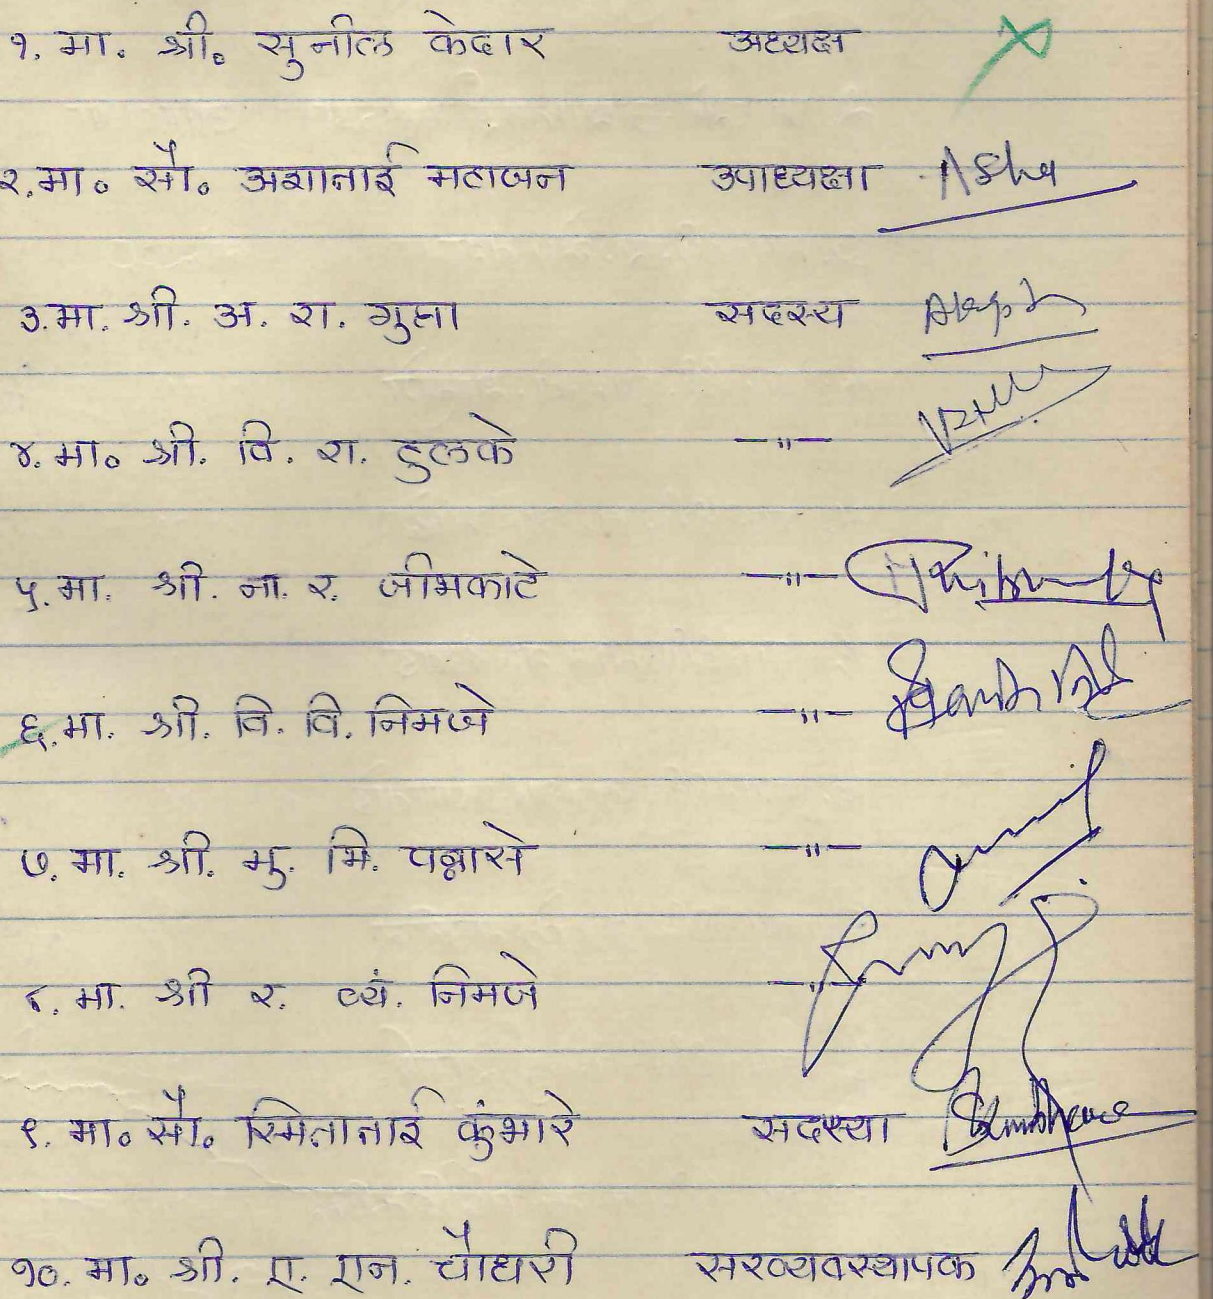 १. मा. श्री. सुनील केदार अध्यक्ष
२. मा. सौ. अशाताई महाजन उपाध्यक्षा Asha
३. मा. श्री. अ. रा. गुप्ता सदस्य
४. मा. श्री. वि. रा. टुलके —"—
५. मा. श्री. ना. र. जीभकाटे —"—
६. मा. श्री. वि. वि. निमजे —"—
७. मा. श्री. मु. मि. पन्नासे —"—
८. मा. श्री र. व्यं. निमजे —"—
९. मा. सौ. स्मिताताई कुंभारे सदस्या
१०. मा. श्री. ए. एन. चौधरी सरव्यवस्थापक